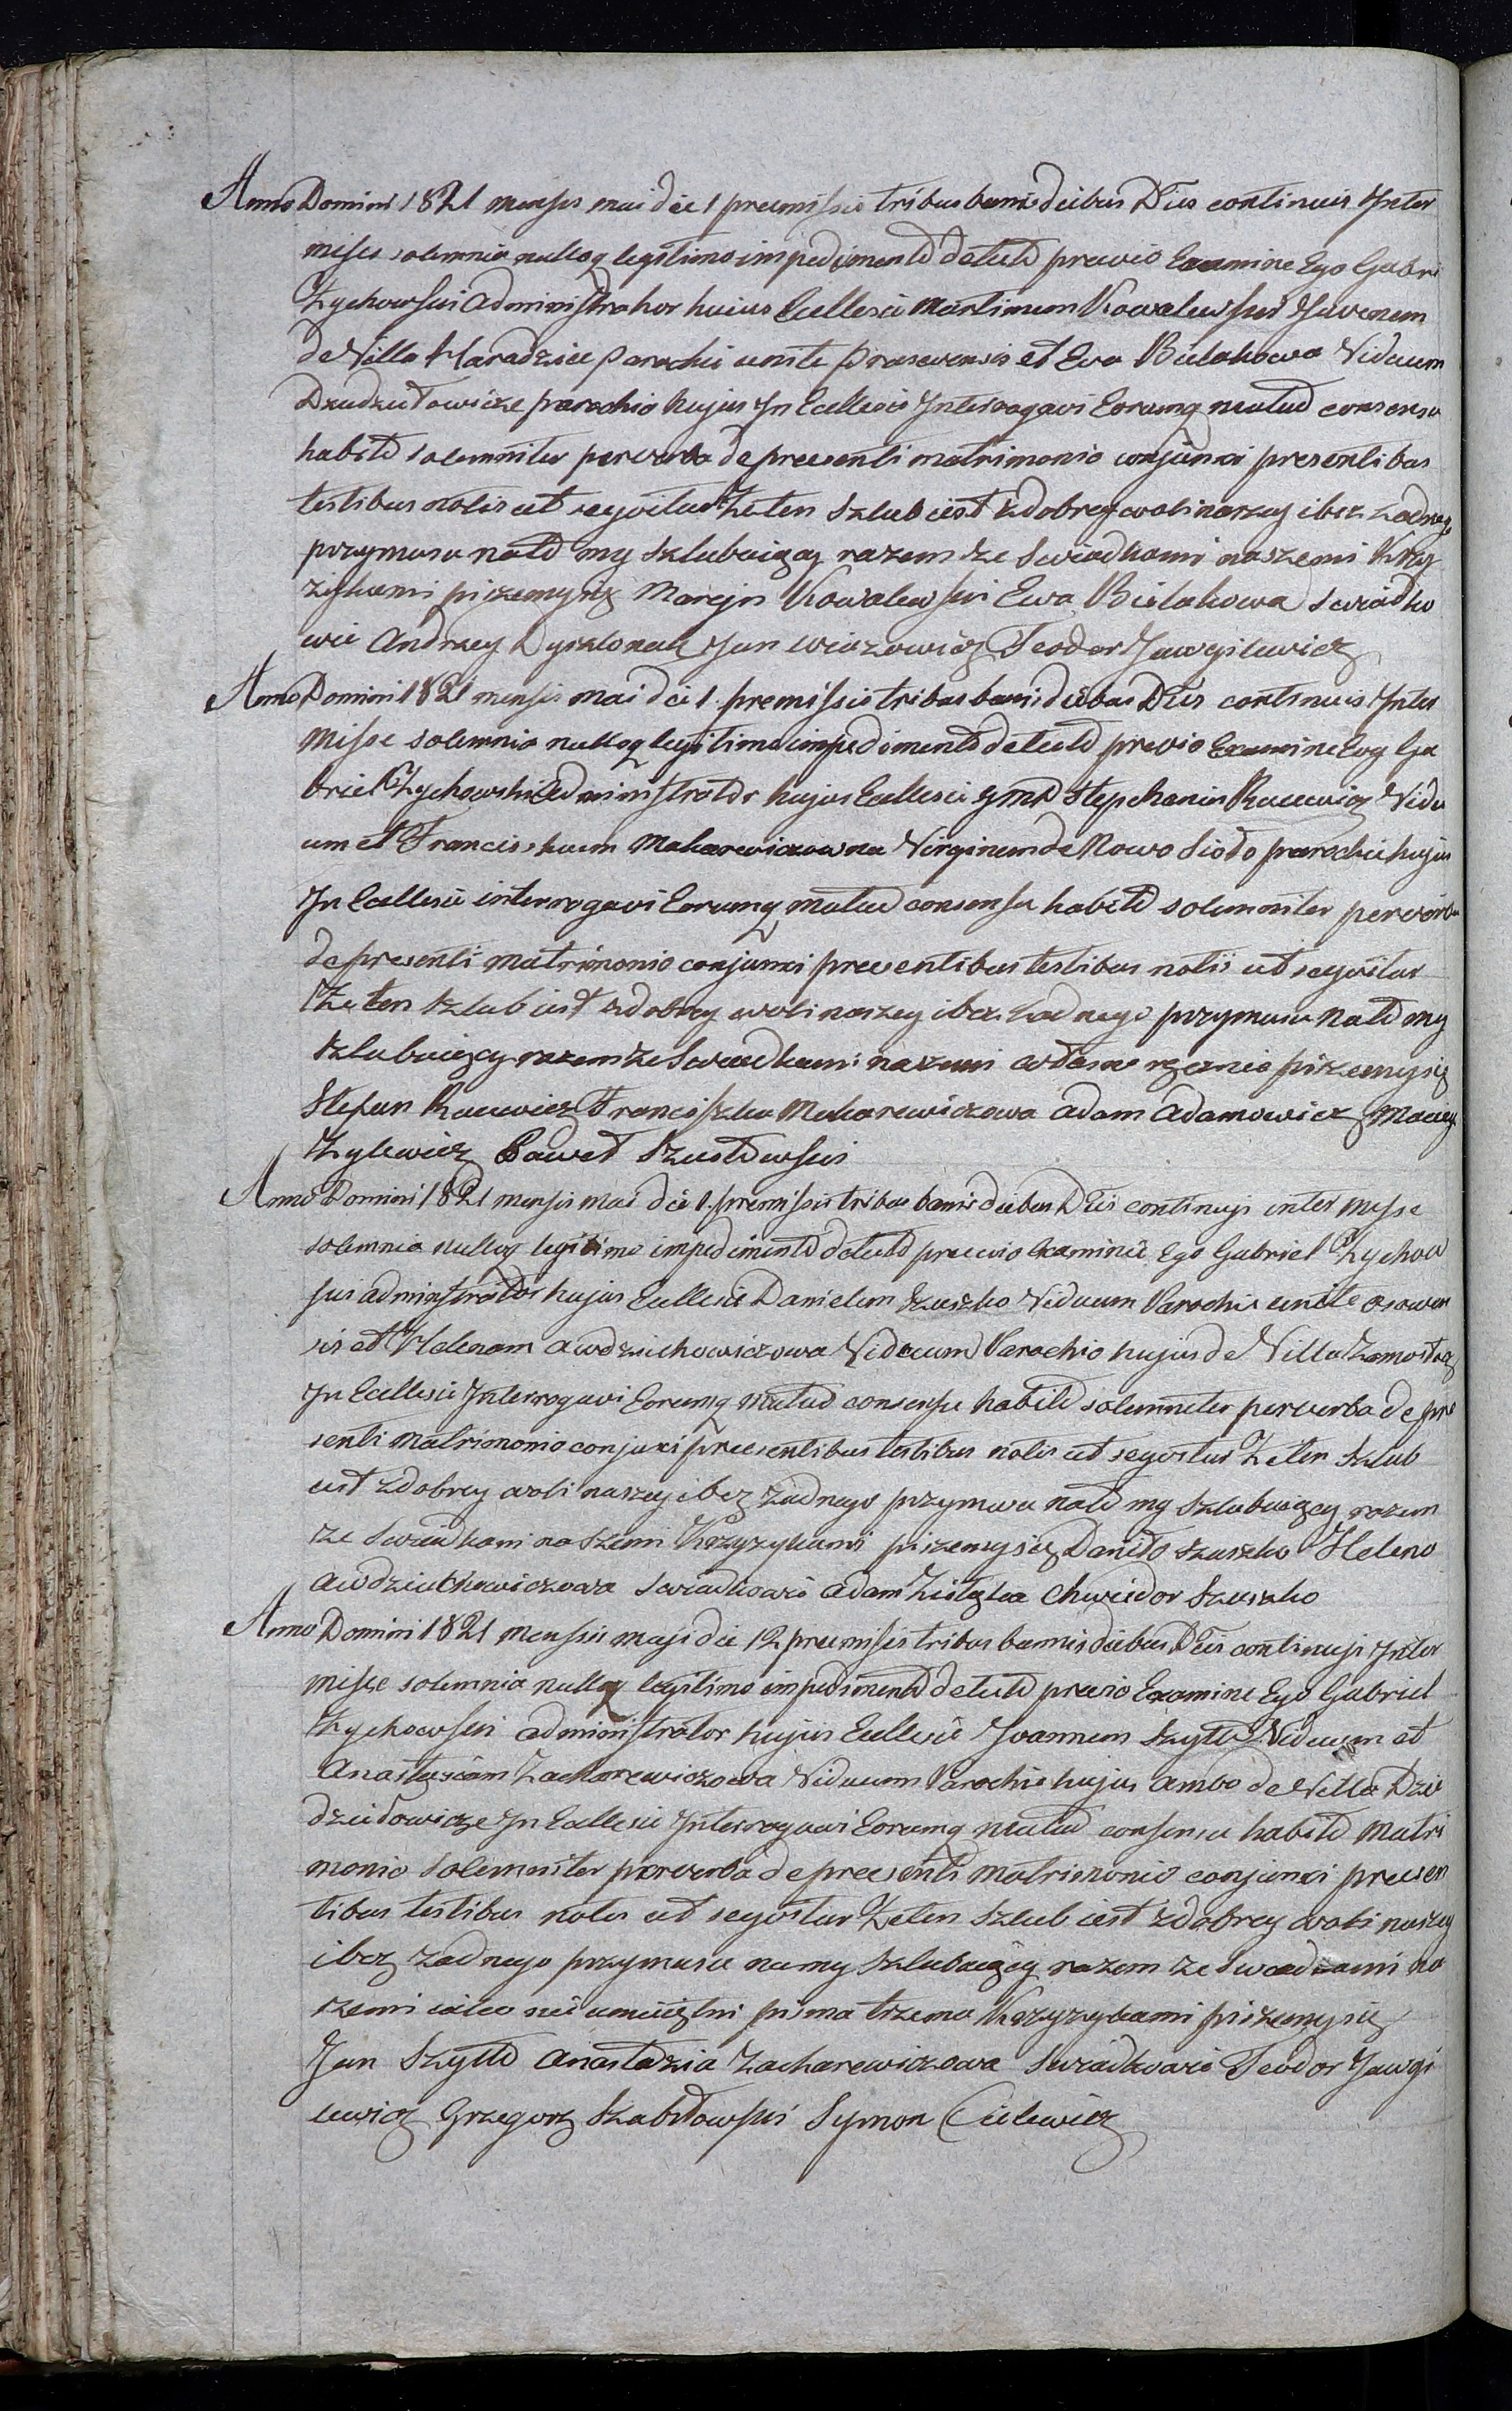 Anno Domini 1821 mensis mai die 1 premissis tribus bannis diebus Dtis continuis Inter
misse solemnia nulloq legitimo impedimento detecto previo Examine Ego Gabri
Zychowski Administrator huius Ecclesie Martinum Kowalewski Juvenem
de Villa Haradzice Parochie unite et Eva Bielakowa Viduum
Dziudziutowicze parochio hujus In Ecclesie Interrogavi Eorumq mutuo consensu
habito solemniter per verba de preesenti matrimonio conjunxi presentibus
testibus notis ut seqvitur Że ten szlub iest z dobrey woli naszey i bez żadnego
przymusu na to my szlubuiący razem ze swiadkami naszemi Krzy
żykami piszemysię Marcjn Kowalewski Ewa Bielakowa swiadko
wie Andrzey Dyszlonak Jan Wiazowicz Teodor Jawgilewicz
Anno Domini 1821 mensis mai die 1. premissis tribus bannis diebus Dtis continuis Inter
Misse solemnia nulloq legitimo impedimento detecto previo Examine Eog Ga
briel Zychowski Administrator hujus Ecclesie Stephanim Racewicz Vidu
um et Francisskam Makarewiczowna Virginem de Nowo Sioło parochie hujus
In Ecclesie interrogavi Eorumq mutuo consensu habito solemniter per verba
de presenti matrimonio conjunxi preesentibus testibus notis ut seqvitur
Że ten szlub iest z dobrey woli naszey i bez żadnego przymusu na to my
szlubuiący razem ze swiadkami naszemi własno ręcznie piszemysię
Stefan Racewicz Franciszka Makarewiczowa Adam Adamowicz Maciey
Zylewicz Paweł
Anno Domini 1821 mensis mai die 1. premissis tribus bannis diebus Dtis continujs inter Misse
solemnia nulloq legitimo impedimento detecto preevio Examinie Ego Gabriel Zychow
ski administrator hujus Ecclesie Danielem Szuszko Viduum Parochie unite osowen
sis et Helenam Awdziuchowiczowa Viduum Parochio hujus de Villa Zamostocz
In Ecclesie Interrogavi Eorumq mutuo consensu habito solemniter per verba de pre
senti Matrimonio conjunxi preesentibus testibus notis ut seqvitur Że ten szlub
iest z dobrey woli naszey i bez żadnego przymusu na to my szlubuiący razem
ze swiadkami naszemi Krzyzykami piszemysię Daniło Szuszko Helena
Awdziuchowiczowa swiadkowie Adam Chwiedor Szuszko
Anno Domini 1821 Mensis maji die 12 preemissis tribus bannis diebus Dtis continujs Inter
misse solemnia nulloq legitimo impedimento detecto previo Examine Ego Gabriel
Zychowski administrator hujus Ecclesie Joannem Szytto Viduum et
Anastasiam Zacharewiczowa Viduum Parochie hujus Ambo de Villa Dziu
dziutowicze In Ecclesie Interrogavi Eorumq mutuo consensu habito Matri
monio solemniter per verba de preesenti Matrimonio conjunxi preesen
tibus testibus notis ut seqvitur Że ten szlub iest z dobrey woli naszey
i bez żadnego przymusu na my szlubuiący razem ze swiadkami na
szemi iako nie umieiętni pisma trzema Krzyzykami piszemysię
Jan Szytto Anastazia Zacharewiczowa swiadkowie Teodor Jawgi
lewicz Grzegorz Szabłowski Symon Cielewicz